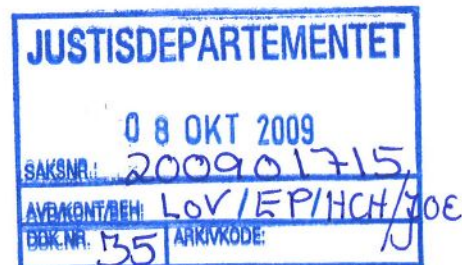 JUSTISDEPARTEMENTET
08 OKT 2009
SAKSNR.: 200901715
AVD/KONT/BEH: LOV/EP/HCH/JOE
DOK.NR. 35 ARKIVKODE: